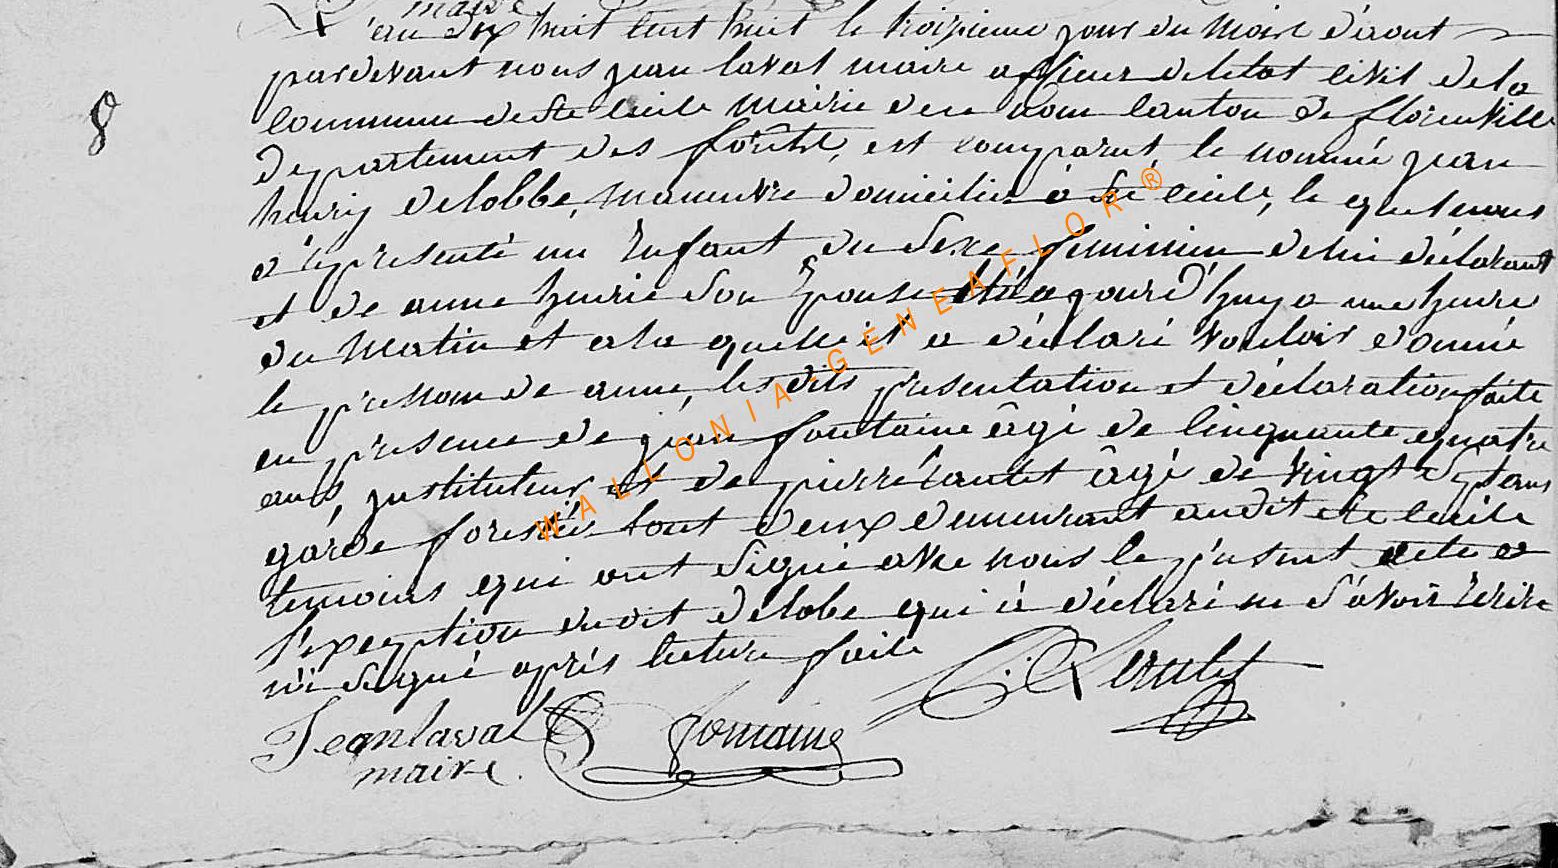 maire
L'an dix huit cent huit le troisieme jour du mois d'aout
pardevant nous jean laval maire officier deletat civil dela
commune de Ste Cecile mairie dece nom canton de florenville
Departement des forêts, est comparut le nommé jean
henry Delobbe, maneuvre domicilié à Ste Cecile, le quel nous
à représenté un Enfant du sexe feminin de lui déclarant
et de anne henrie son Epouse née ajourd'huy a une heure
du matin et ala quelle il a déclaré vouloir donné
le prenom de anne, les dits presentation et déclaration faite
en presence de jean fontaine âgé de cinquante quatre
ans, justituteur et de pierre âgé de vingt sept ans
garde forestié tout deux demeurant audit Ste Cecile
temoins qui ont signé avec nous le present acte a
l'exeption dudit Delobe qui à déclaré ne s'avoir écrire
ni signé après lecture faite
Jean laval
fontaine
maire.
8
WALLONIA-GENEAFLOR®